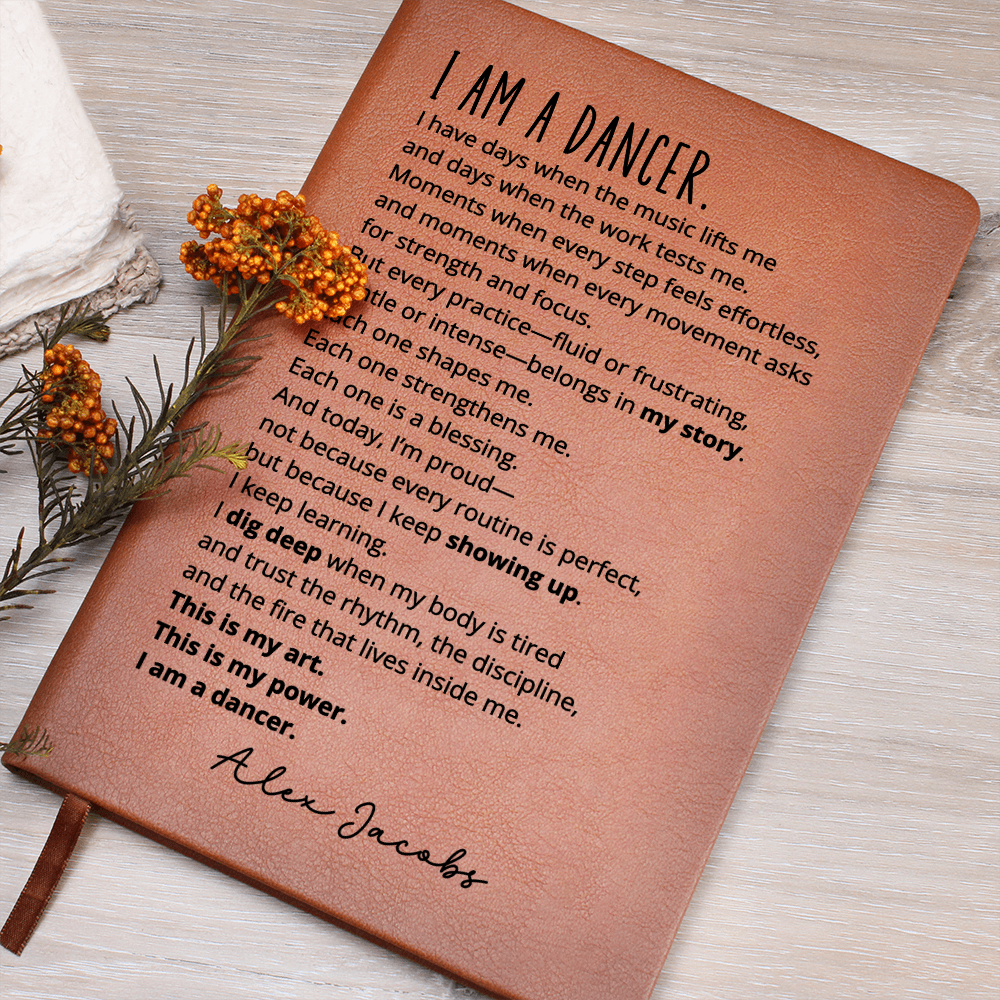 I AM A DANCER.
I have days when the music lifts me
and days when the work tests me.
Moments when every step feels effortless,
and moments when every movement asks
for strength and focus.
But every practice—fluid or frustrating,
gentle or intense—belongs in my story.
Each one shapes me.
Each one strengthens me.
Each one is a blessing.
And today, I'm proud—
not because every routine is perfect,
but because I keep showing up.
I keep learning.
I dig deep when my body is tired
and trust the rhythm, the discipline,
and the fire that lives inside me.
This is my art.
This is my power.
I am a dancer.
Alex Jacobs